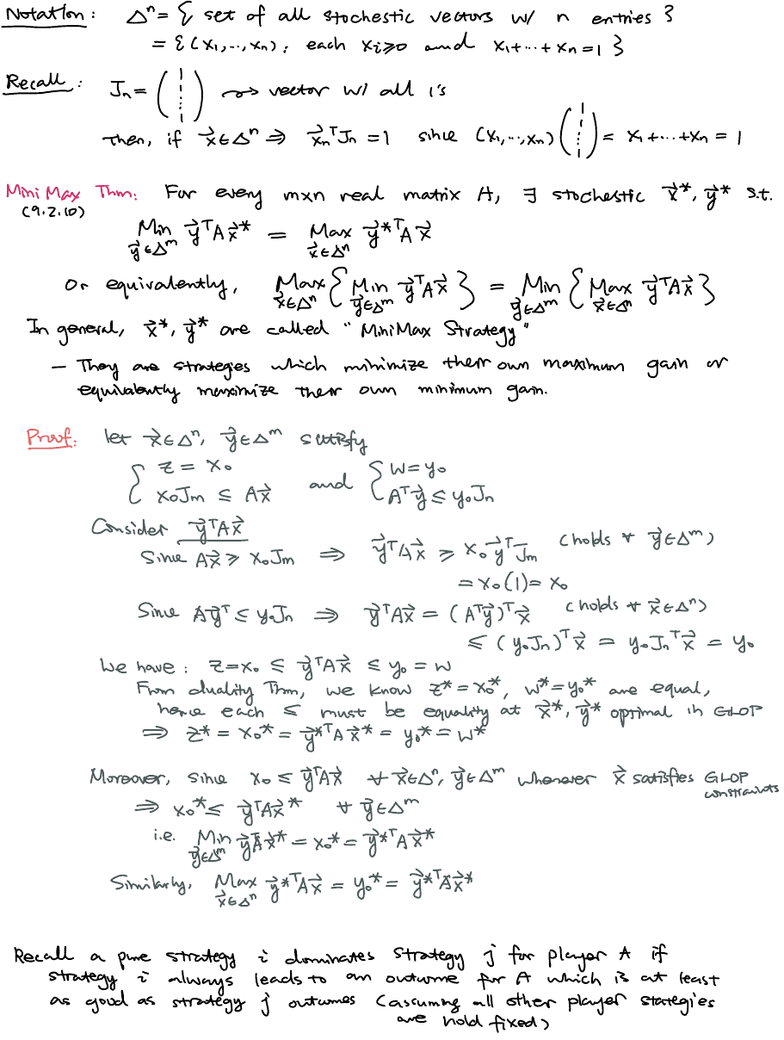 Notation: Δⁿ = { set of all stochastic vectors w/ n entries }
= {(x₁,...,xₙ): each xᵢ≥0 and x₁+...+xₙ=1 }
Recall: Jₙ = (1 ⋮ 1) ⇝ vector w/ all 1's
Then, if x⃗∈Δⁿ ⇒ x⃗ₙᵀJₙ = 1 since (x₁,...,xₙ)(1 ⋮ 1) = x₁+...+xₙ = 1
MiniMax Thm: For every mxn real matrix A, ∃ stochastic x⃗*, y⃗* s.t.
(9.2.10)
Min_{y⃗∈Δᵐ} y⃗ᵀAx⃗* = Max_{x⃗∈Δⁿ} y⃗*ᵀAx⃗
Or equivalently, Max_{x⃗∈Δⁿ} { Min_{y⃗∈Δᵐ} y⃗ᵀAx⃗ } = Min_{y⃗∈Δᵐ} { Max_{x⃗∈Δⁿ} y⃗ᵀAx⃗ }
In general, x⃗*, y⃗* are called "MiniMax Strategy"
– They are strategies which minimize their own maximum gain or
equivalently maximize their own minimum gain.
Proof: let x⃗∈Δⁿ, y⃗∈Δᵐ satisfy
{ z = x₀ and { w = y₀
x₀Jₘ ≤ Ax⃗ Aᵀy⃗ ≤ y₀Jₙ
Consider y⃗ᵀAx⃗
Since Ax⃗ ≥ x₀Jₘ ⇒ y⃗ᵀAx⃗ ≥ x₀y⃗ᵀJₘ (holds ∀ y⃗∈Δᵐ)
= x₀(1) = x₀
Since Ay⃗ᵀ ≤ y₀Jₙ ⇒ y⃗ᵀAx⃗ = (Aᵀy⃗)ᵀx⃗ (holds ∀ x⃗∈Δⁿ)
≤ (y₀Jₙ)ᵀx⃗ = y₀Jₙᵀx⃗ = y₀
We have: z=x₀ ≤ y⃗ᵀAx⃗ ≤ y₀ = w
From duality Thm, we know z*=x₀*, w*=y₀* are equal,
hence each ≤ must be equality at x⃗*, y⃗* optimal in GLOP
⇒ z* = x₀* = y⃗*ᵀAx⃗* = y₀* = w*
Moreover, since x₀ ≤ y⃗ᵀAx⃗ ∀ x⃗∈Δⁿ, y⃗∈Δᵐ whenever x⃗ satisfies GLOP constraints
⇒ x₀* ≤ y⃗ᵀAx⃗* ∀ y⃗∈Δᵐ
i.e. Min_{y⃗∈Δᵐ} y⃗ᵀAx⃗* = x₀* = y⃗*ᵀAx⃗*
Similarly, Max_{x⃗∈Δⁿ} y⃗*ᵀAx⃗ = y₀* = y⃗*ᵀAx⃗*
Recall a pure strategy i dominates strategy j for player A if
strategy i always leads to an outcome for A which is at least
as good as strategy j outcomes (assuming all other player stategies
are hold fixed)